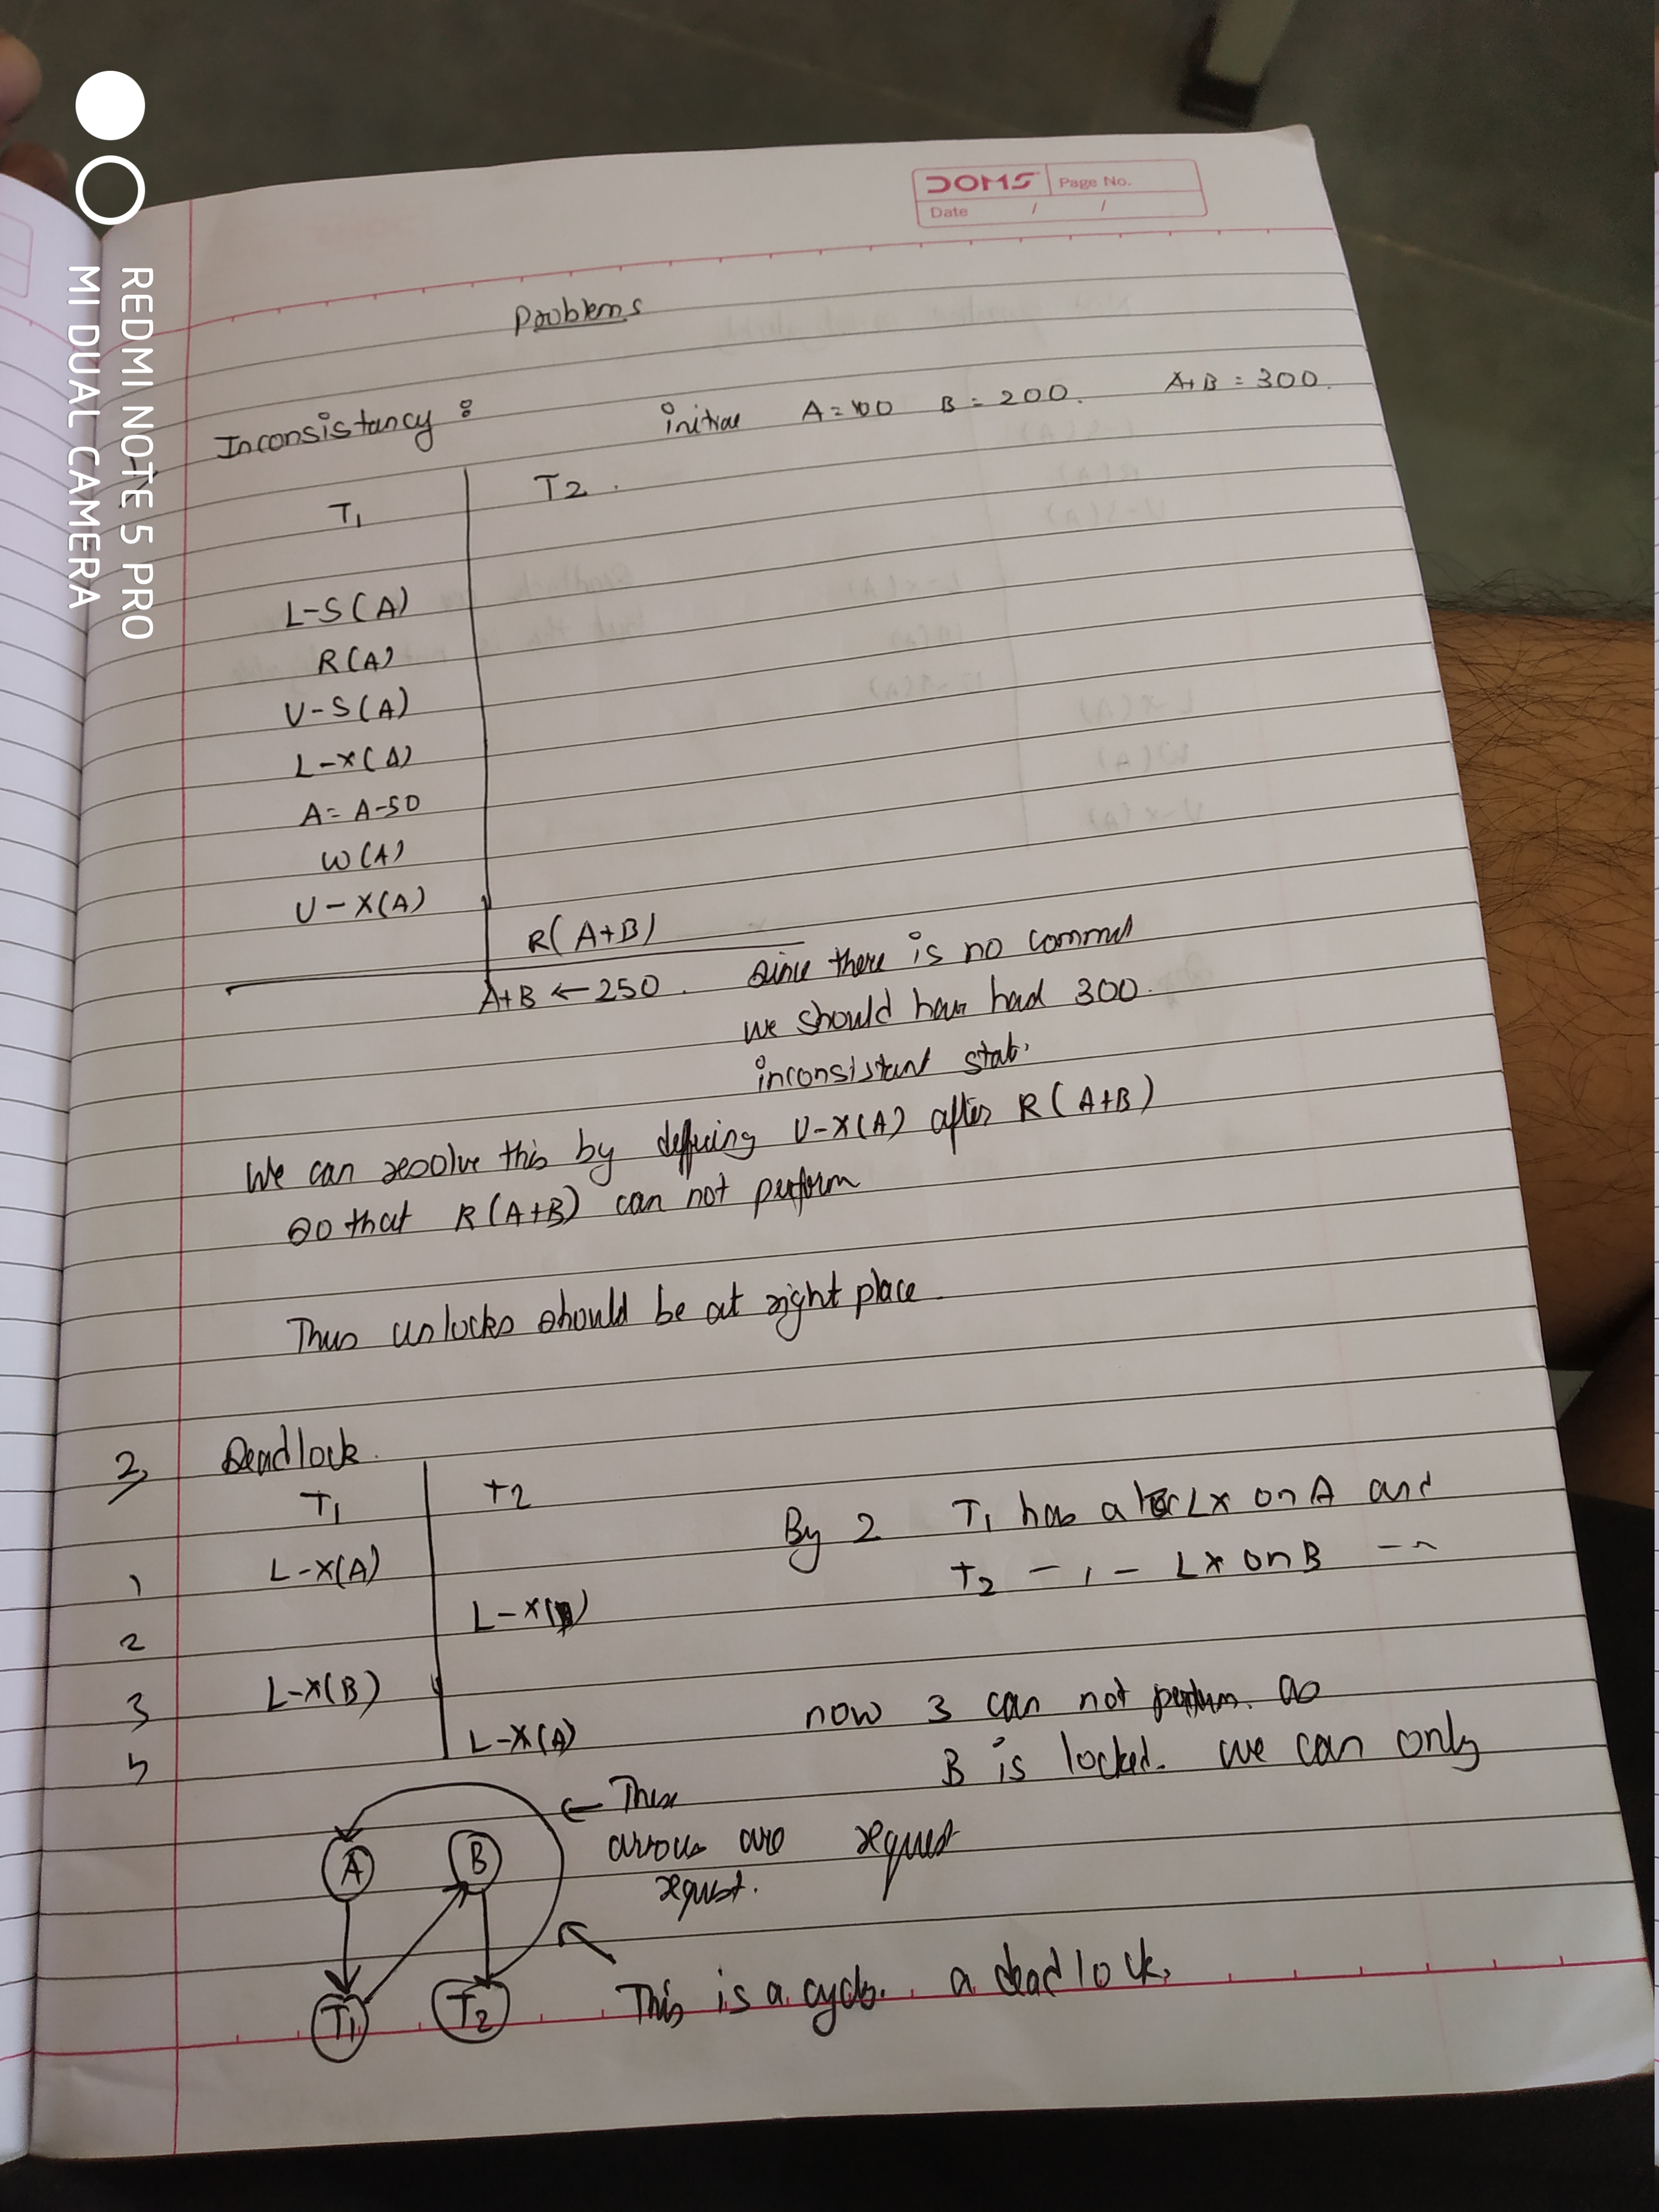 DOMS Page No.
Date / /
Problems
Inconsistancy : initial A=100 B=200. A+B=300.
T1 T2.
L-S(A)
R(A)
U-S(A)
L-X(A)
A= A-50
W(A)
U-X(A)
R(A+B)
A+B ← 250. since there is no commit
we should have had 300.
inconsistant state.
We can resolve this by U-X(A) after R(A+B)
so that R(A+B) can not perform
Thus unlocks should be at right place.
2, Deadlock.
T1 T2
1 L-X(A)
2 L-X(B)
3 L-X(B)
L-X(A)
By 2 T1 has a LX on A and
T2 -,- LX on B --
now 3 can not perform. as
B is locked. we can only
request
A B
T1 T2
← These
arrows are
request.
This is a cycle. a deadlock.
REDMI NOTE 5 PRO
MI DUAL CAMERA